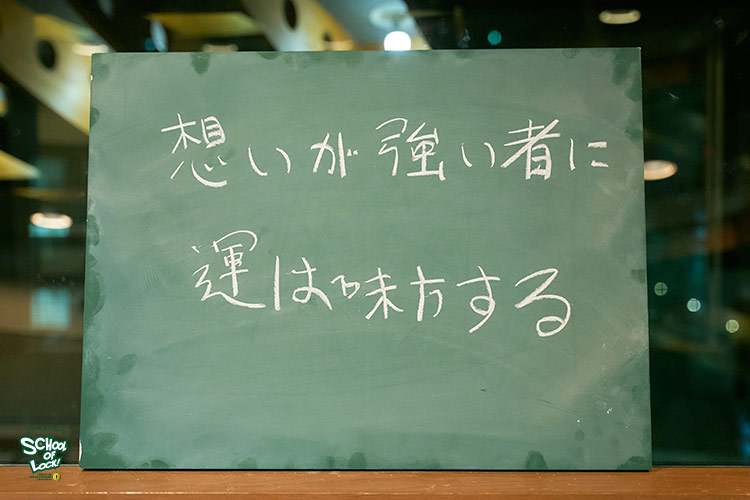 想いが強い者に
運は味方する
SCHOOL
OF
LOCK!